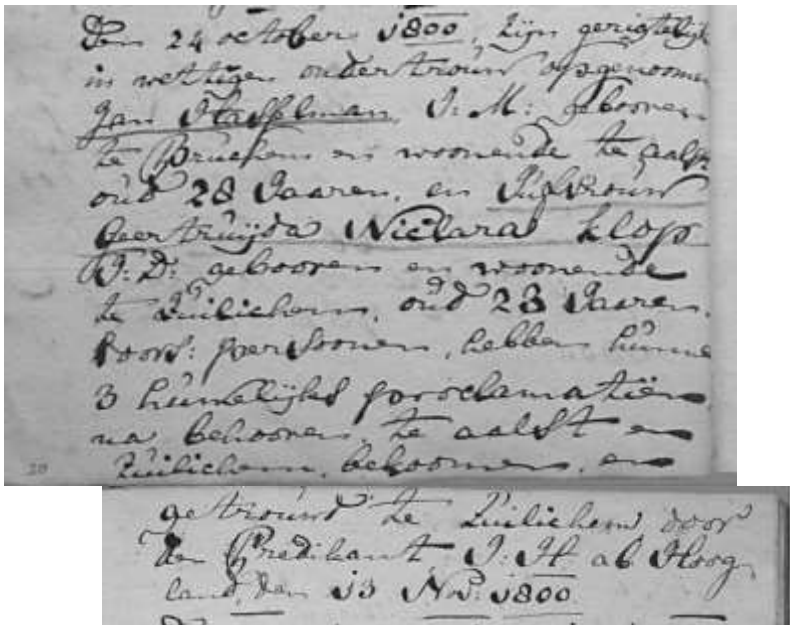 Den 24 october 1800, zijn gerigtelijk
in wettigen ondertrouw opgenoomen
Jan Hasselman J: M: gebooren
te Bruchem en woonende te aalst
oud 28 Jaaren, en Jufvrouw
Geertruijda Niclara Klop
J: D: gebooren en woonende
te Zuilichem, oud 23 Jaaren.
voors: persoonen, hebben hunne
3 huwelijks proclamatiën
na behooren te aalst en
Zuilichem, bekoomen, en
20
getrouwt te Zuilichem door
den Predikant J: H ab Hoog
land, den 13 Nov: 1800